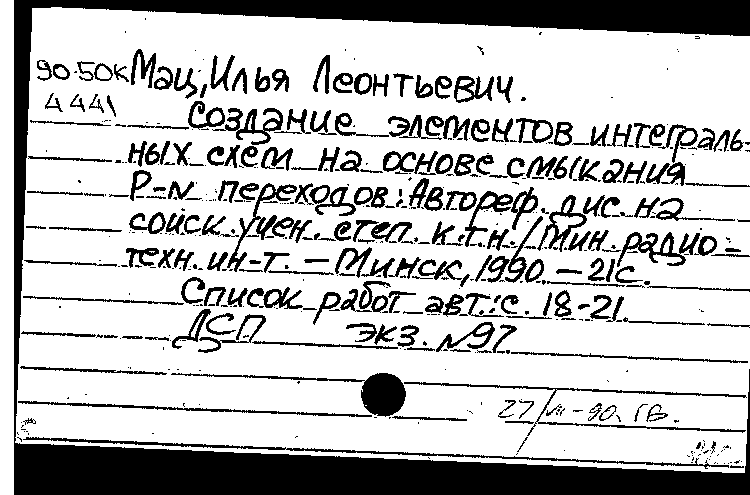 90-50К Мац, Илья Леонтьевич.
4441 Создание элементов интеграль-
ных схем на основе смыкания
P-N переходов: Автореф. дис. на
соиск. учен. степ. к.т.н. / Мин. радио-
техн. ин-т. – Минск, 1990. – 21 с.
Список работ авт.: с. 18-21.
ДСП экз. №97
27/VII-90 ГВ.